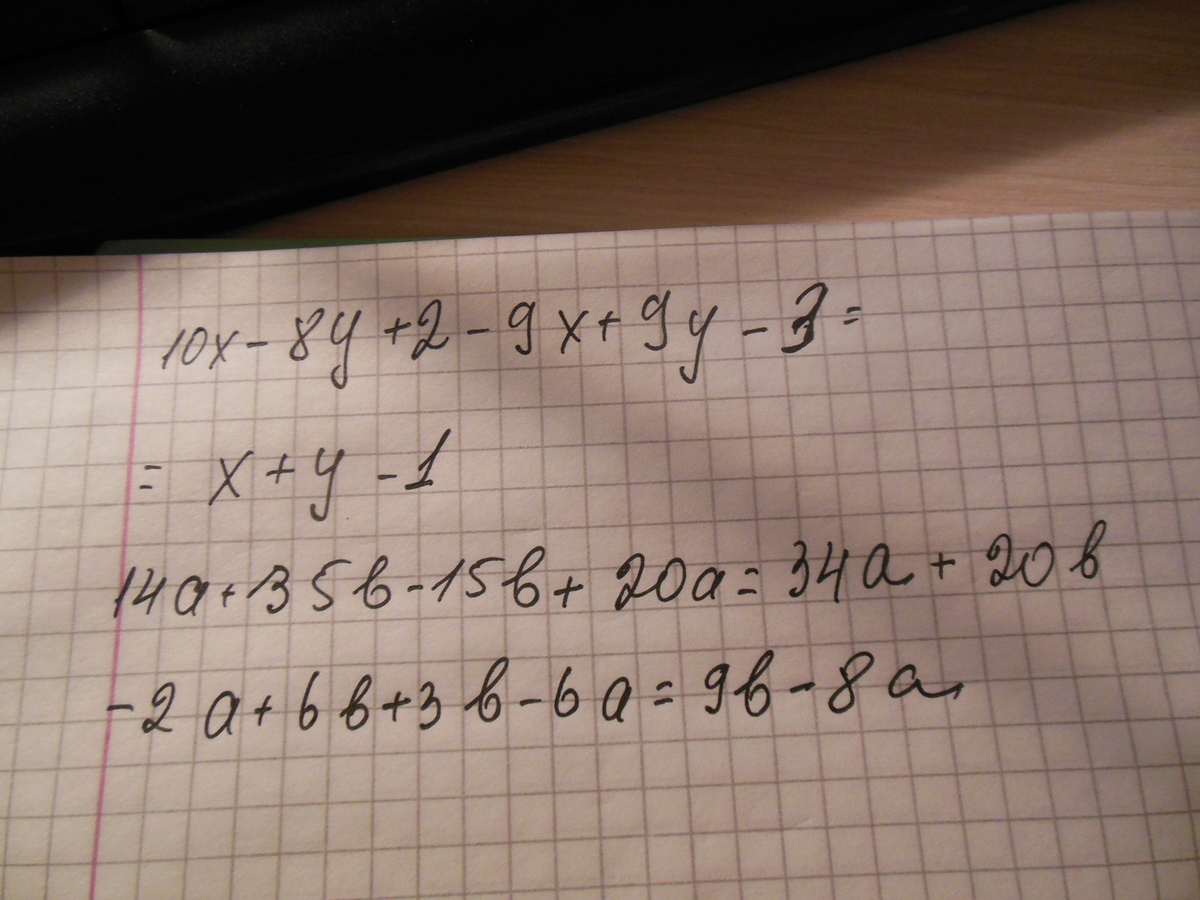 10x - 8y + 2 - 9x + 9y - 3 =
= x + y - 1
14a + 35b - 15b + 20a = 34a + 20b
-2a + 6b + 3b - 6a = 9b - 8a